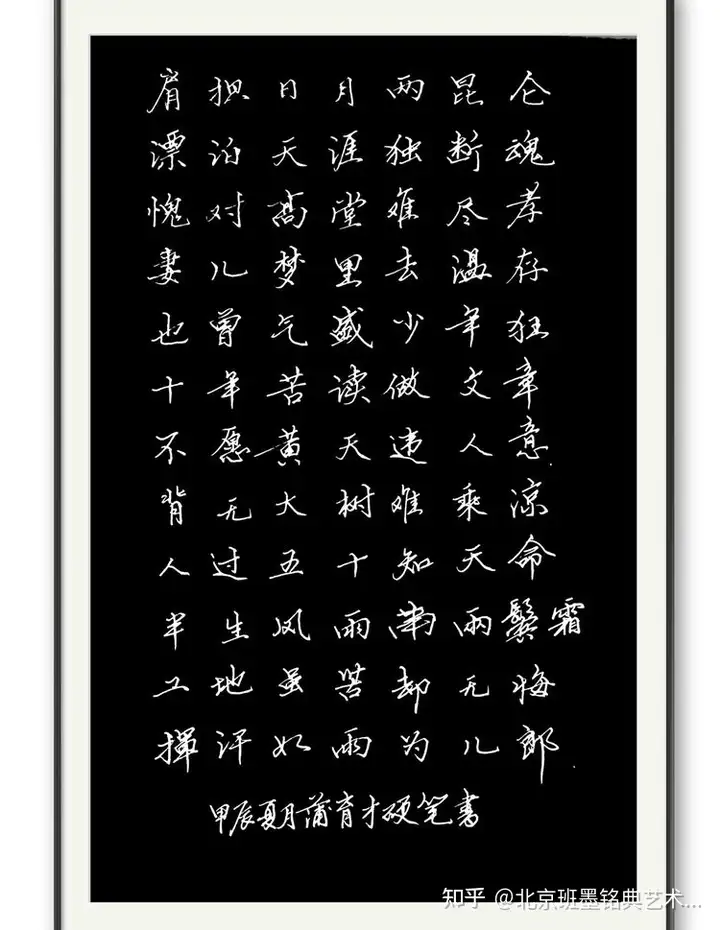 肩担日月两昆仑
漂泊天涯独断魂
愧对高堂难尽孝
妻儿梦里去温存
也曾气盛少年狂
十年苦读做文章
不愿黄天违人意
背无大树难乘凉
人过五十知天命
半生风雨两鬓霜
工地虽苦却无悔
挥汗如雨为儿郎
甲辰夏月蒲育才硬笔书
知乎 @北京班墨铭典艺术...